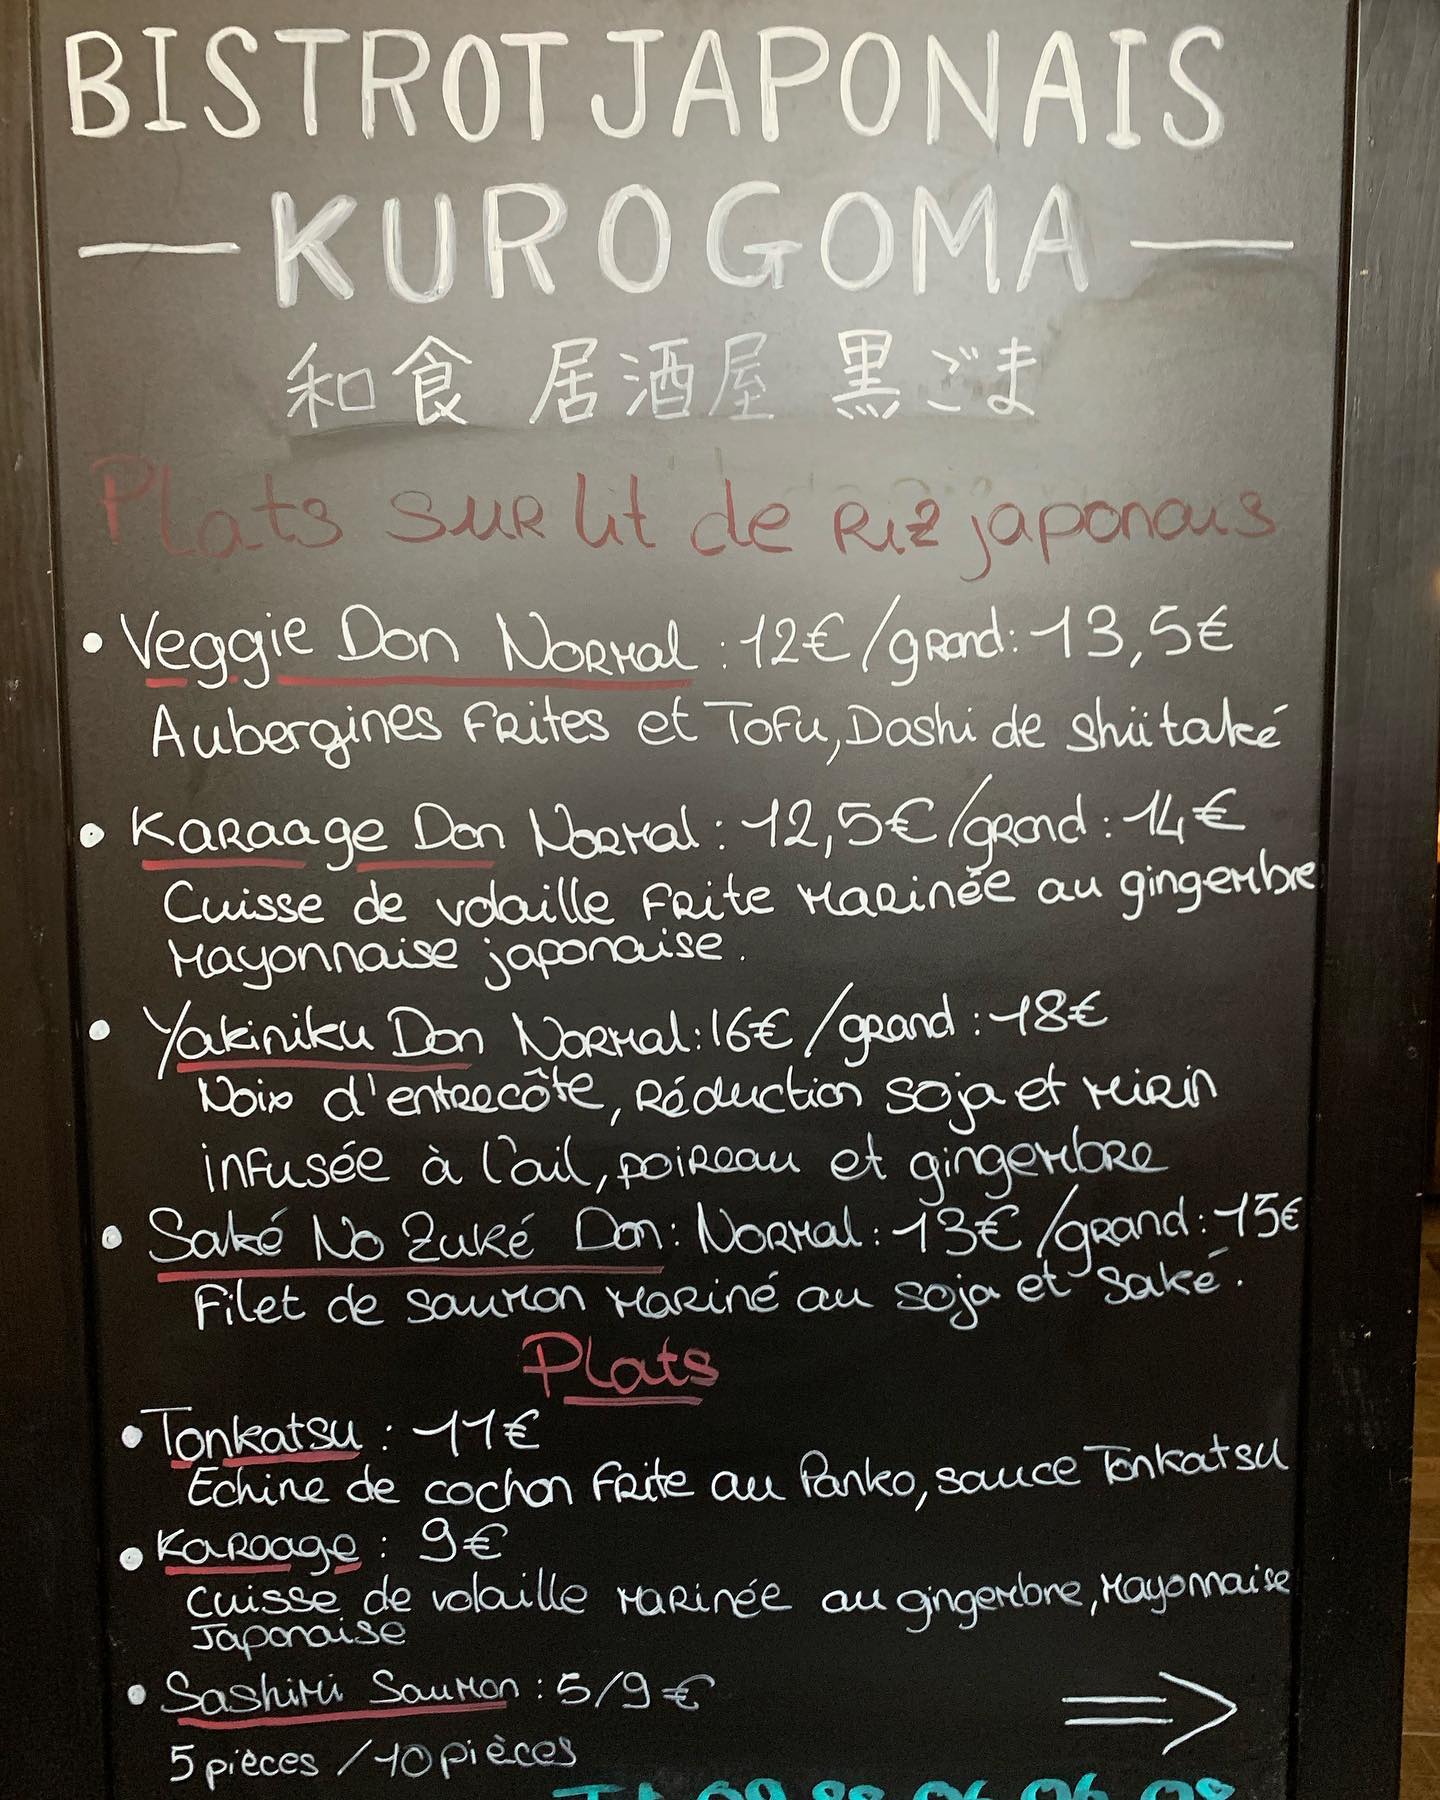 BISTROT JAPONAIS
— KUROGOMA —
和食 居酒屋 黒ごま
Plats sur lit de Riz japonais
• Veggie Don Normal : 12€/grand : 13,5€
Aubergines Frites et Tofu, Dashi de shiitaké
• Karaage Don Normal : 12,5€/grand : 14€
Cuisse de volaille Frite Marinée au gingembre
Mayonnaise japonaise.
• Yakiniku Don Normal : 16€/grand : 18€
Noix d'entrecôte, Réduction soja et Mirin
infusée à l'ail, poireau et gingembre
• Saké No Zuké Don : Normal : 13€/grand : 15€
Filet de saumon Mariné au soja et saké.
Plats
• Tonkatsu : 11€
Echine de cochon Frite au Panko, sauce Tonkatsu
• Karaage : 9€
Cuisse de volaille Marinée au gingembre, Mayonnaise
Japonaise
• Sashimi Saumon : 5/9€
5 pièces / 10 pièces